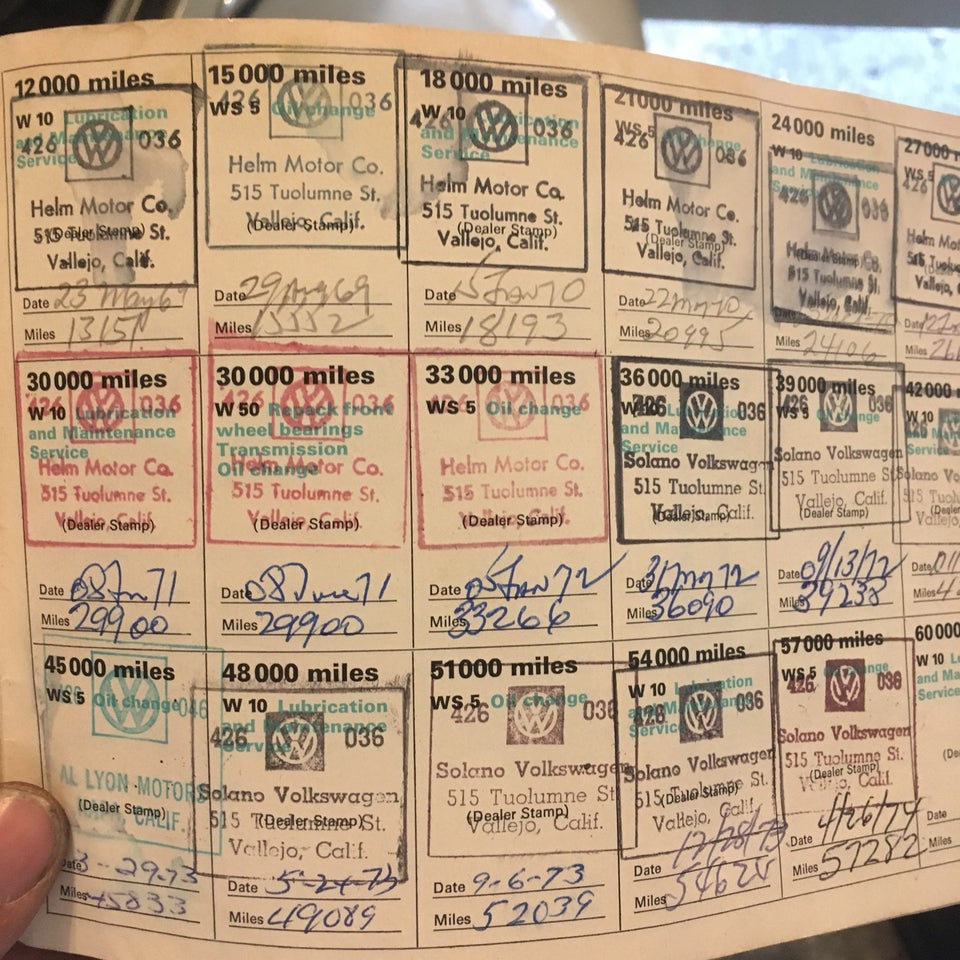 12 000 miles
W 10 Lubrication and Maintenance Service
426 036
Helm Motor Co.
515 Tuolumne St.
(Dealer Stamp)
Vallejo, Calif.
Date 23 May 69
Miles 13151
15 000 miles
WS 5 Oil change
426 036
Helm Motor Co.
515 Tuolumne St.
Vallejo, Calif.
(Dealer Stamp)
Date 29 Aug 69
Miles 15552
18 000 miles
W 10 Lubrication and Maintenance Service
426 036
Helm Motor Co.
515 Tuolumne St.
(Dealer Stamp)
Vallejo, Calif.
Date 5 Jan 70
Miles 18193
21 000 miles
WS 5 Oil change
426 036
Helm Motor Co.
515 Tuolumne St.
(Dealer Stamp)
Vallejo, Calif.
Date 22 May 70
Miles 20995
24 000 miles
W 10 Lubrication and Maintenance Service
426 036
Helm Motor Co.
515 Tuolumne St.
Vallejo, Calif.
Date
Miles 24106
27 000
WS 5
426
Helm
515
Date
Miles
30 000 miles
W 10 Lubrication
and Maintenance
Service
426 036
Helm Motor Co.
515 Tuolumne St.
Vallejo, Calif.
(Dealer Stamp)
Date 08 Jun 71
Miles 29900
30 000 miles
W 50 Repack front
wheel bearings
Transmission
Oil change
426 036
Helm Motor Co.
515 Tuolumne St.
Vallejo, Calif.
(Dealer Stamp)
Date 08 June 71
Miles 29900
33 000 miles
WS 5 Oil change
426 036
Helm Motor Co.
515 Tuolumne St.
Vallejo, Calif.
(Dealer Stamp)
Date 05 Jan 72
Miles 33266
36 000 miles
W 10 Lubrication
and Maintenance
Service
426 036
Solano Volkswagen
515 Tuolumne St.
Vallejo, Calif.
(Dealer Stamp)
Date 31 May 72
Miles 36090
39 000 miles
WS 5 Oil change
426 036
Solano Volkswagen
515 Tuolumne St.
Vallejo, Calif.
(Dealer Stamp)
Date 9/13/72
Miles 39238
42 000
W 10
Service
Solano
515
Vallejo,
Date
Miles
45 000 miles
WS 5 Oil change
046
AL LYON MOTORS
(Dealer Stamp)
CALIF.
Date 3-29-73
Miles 45833
48 000 miles
W 10 Lubrication
and Maintenance
Service
426 036
Solano Volkswagen
515 Tuolumne St.
(Dealer Stamp)
Vallejo, Calif.
Date 5-24-73
Miles 49089
51 000 miles
WS 5 Oil change
426 036
Solano Volkswagen
515 Tuolumne St.
(Dealer Stamp)
Vallejo, Calif.
Date 9-6-73
Miles 52039
54 000 miles
W 10 Lubrication
and Maintenance
Service
426 036
Solano Volkswagen
515 Tuolumne St.
(Dealer Stamp)
Vallejo, Calif.
Date 12/28/73
Miles 54625
57 000 miles
WS 5 Oil change
426 036
Solano Volkswagen
515 Tuolumne St.
(Dealer Stamp)
Vallejo, Calif.
Date 4/26/74
Miles 57282
60 000
W 10
and
Service
Date
Miles